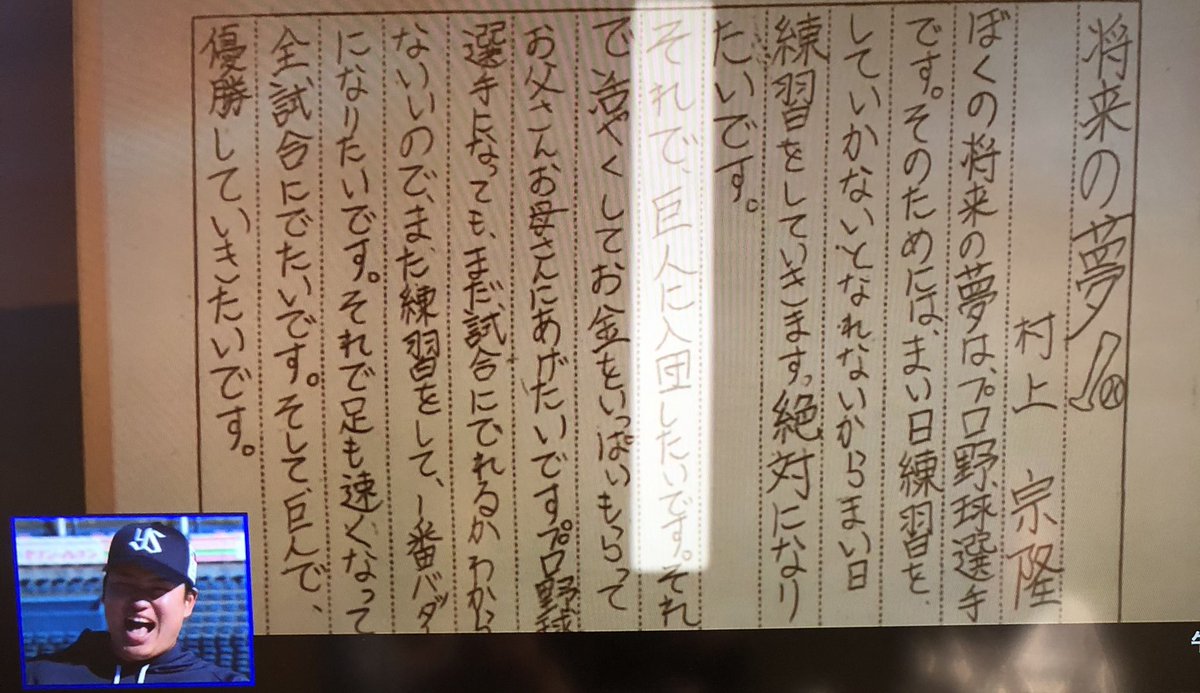 将来の夢
村上 宗隆
ぼくの将来の夢は、プロ野球選手
です。そのためには、まい日練習を、
していかないとなれないからまい日
練習をしていきます。絶対になり
たいです。
それで、巨人に入団したいです。それ
で活やくしてお金をいっぱいもらって
お父さん、お母さんにあげたいです。プロ野球
選手になっても、まだ、試合にでれるかわから
ないので、また練習をして、一番バダ
になりたいです。それで足も速くなって
全試合にでたいです。そして、巨人で、
優勝していきたいです。
YS